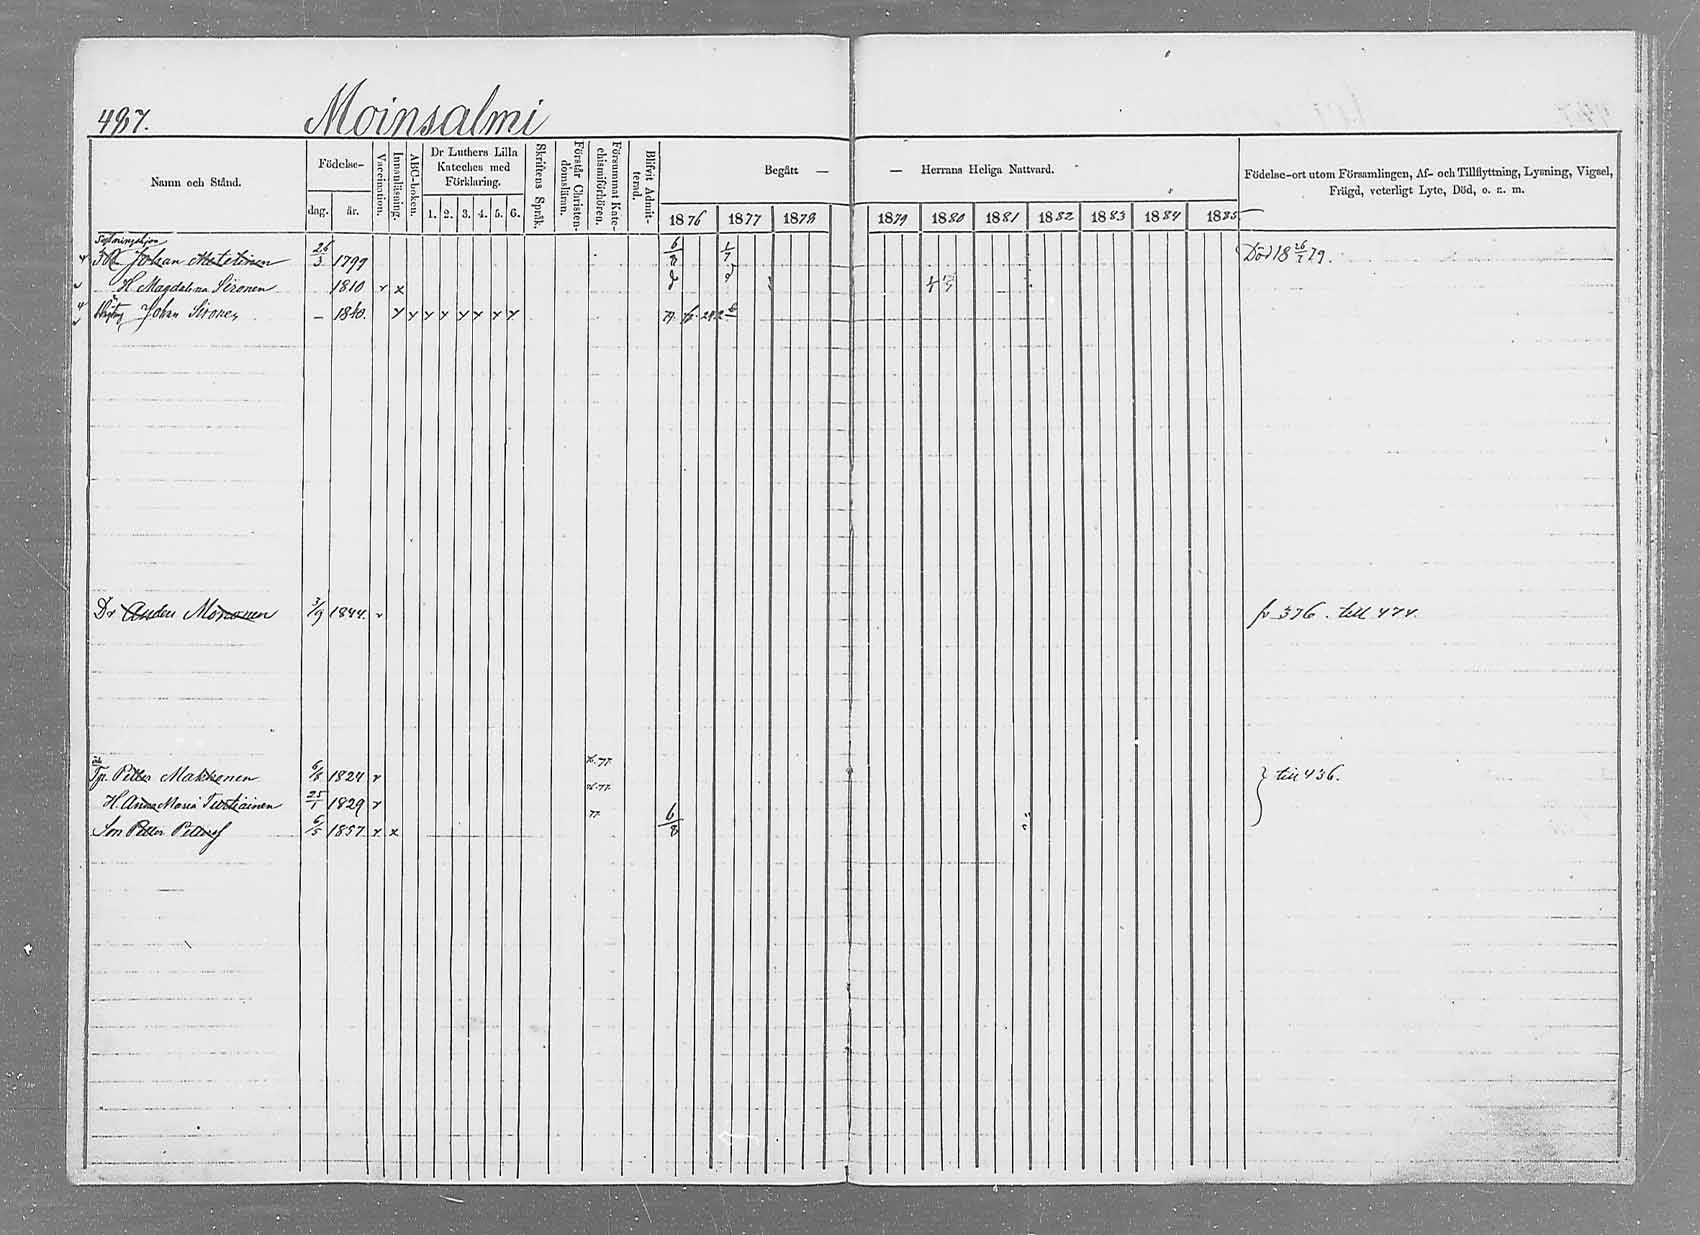 497. Moinsalmi
Namn och Stånd.
Födelse-
dag. år.
Vaccination.
Innanläsning.
ABC-boken.
Dr Luthers Lilla
Kateches med
Förklaring.
1. 2. 3. 4. 5. 6.
Skriftens Språk.
Förstår Christen-
domsläran.
Försummat Kate-
chismiförhören.
Blifvit Admit-
terad.
Begått — — Herrans Heliga Nattvard.
1876 1877 1878 1879 1880 1881 1882 1883 1884 1885
Födelse-ort utom Församlingen, Af- och Tillflyttning, Lysning, Vigsel,
Frägd, veterligt Lyte, Död, o. s. m.
Johan 26/3 1799 6/8 1/7 Död 18 26/1 79.
H. Magdalena Sironen 1810 v x
Johan Sironen — 1840.
Dr Anders Mononen 3/9 1844. v fr 376. till 474.
76.77.
Petter Makkonen 6/8 1824 v till 436.
76.77.
H. Anna Maria Turtiainen 25/1 1829 v
77.
Son Petter Pettersf 6/5 1857. v x 6/8